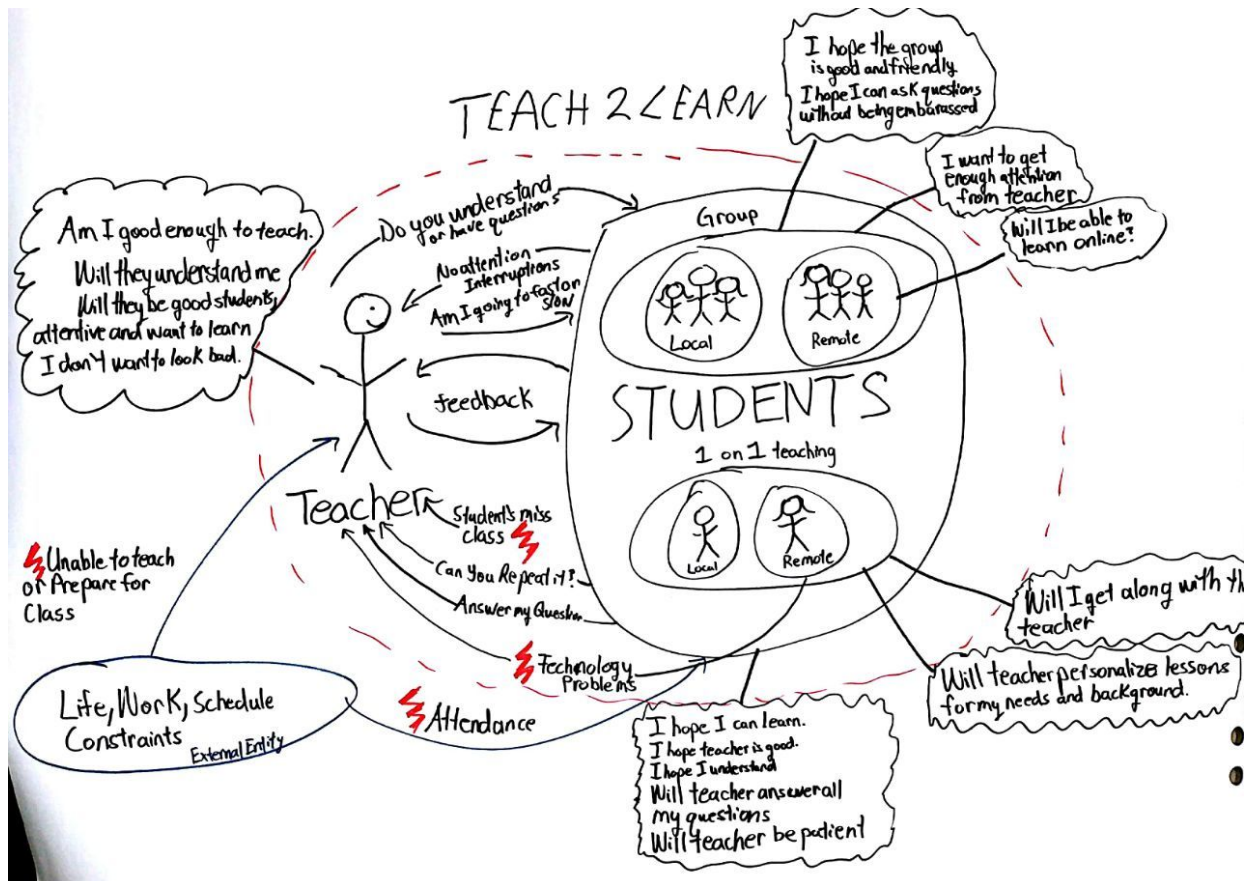 TEACH 2 LEARN
I hope the group
is good and friendly
I hope I can ask questions
without being embarassed
I want to get
enough attention
from teacher
Will I be able to
learn online?
Am I good enough to teach.
Will they understand me
Will they be good students,
attentive and want to learn
I don't want to look bad.
Do you understand
or have questions
No attention
Interruptions
Am I going to fast or
slow
feedback
Group
Local
Remote
STUDENTS
1 on 1 teaching
Local
Remote
Teacher
Student's miss
class
Can You Repeat it?
Answer my Question
Technology
Problems
Unable to teach
or Prepare for
Class
Life, Work, Schedule
Constraints
External Entity
Attendance
Will I get along with th
teacher
Will teacher personalize lessons
for my needs and background.
I hope I can learn.
I hope teacher is good.
I hope I understand
Will teacher answer all
my questions
Will teacher be patient